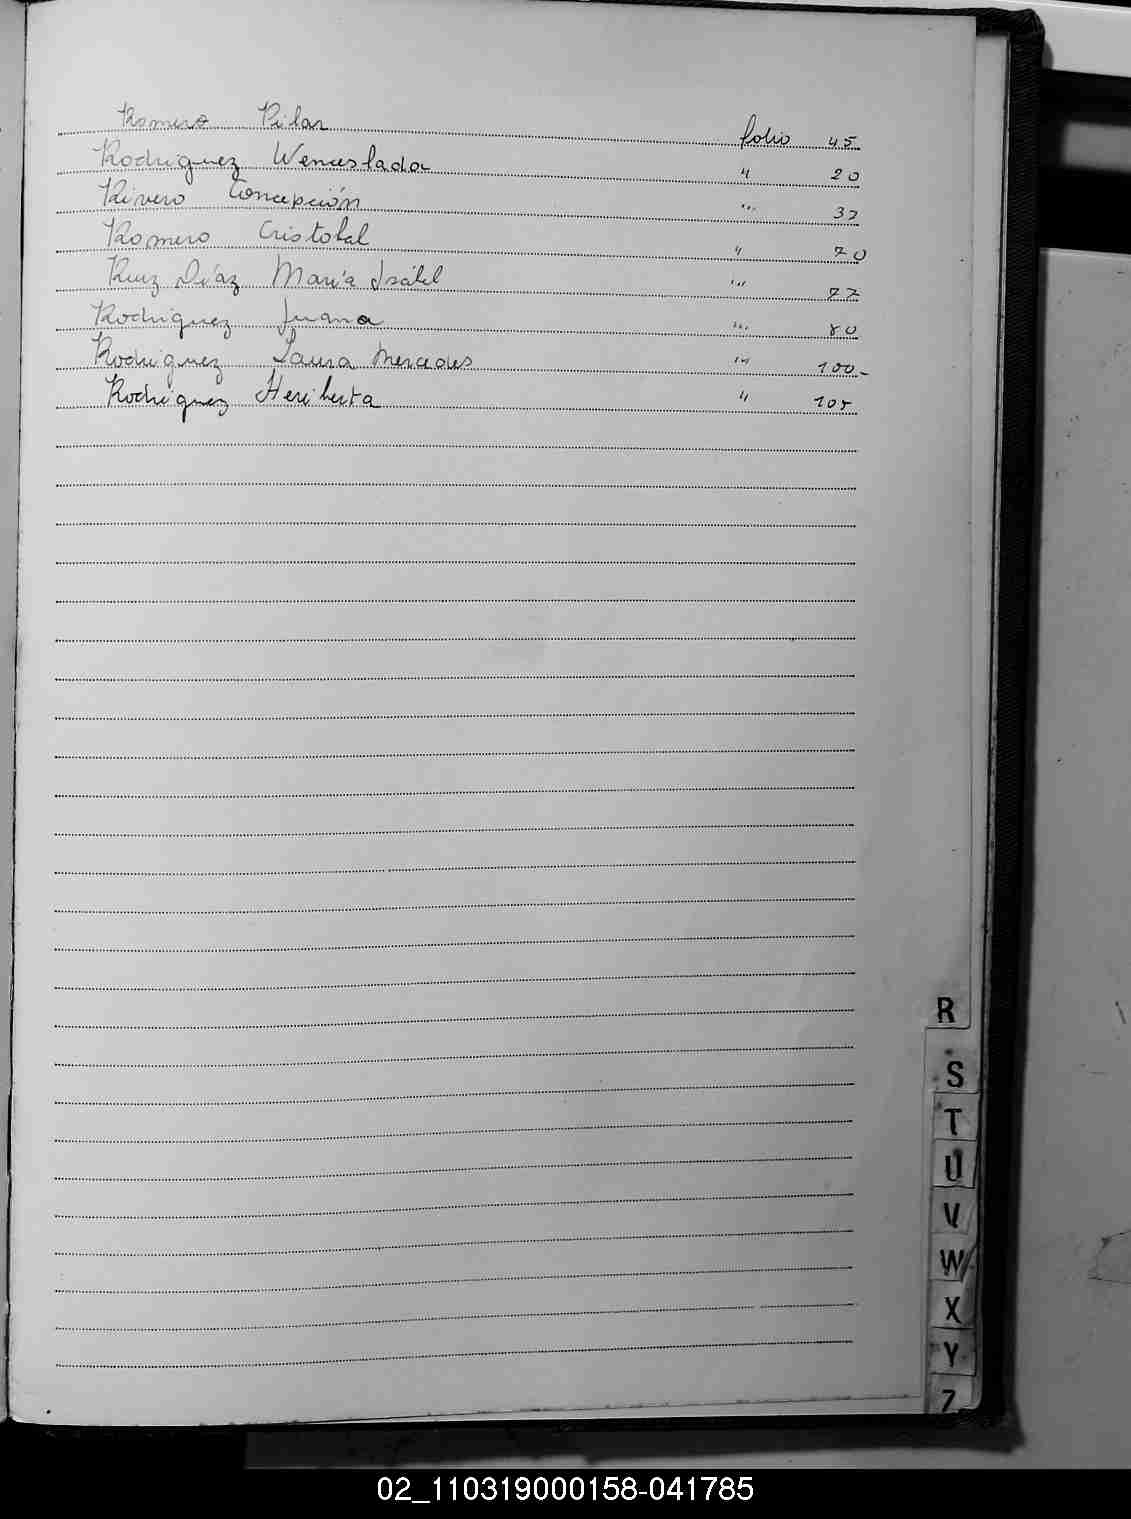 Romero Pilar folio 45
Rodriguez Wenceslada " 20
Rivero Concepción " 32
Romero Cristobal " 70
Ruiz Díaz María Isabel " 77
Rodriguez Juana " 80
Rodriguez Laura Mercedes " 100-
Rodriguez Heriberta " 105
R
S
T
U
V
W
X
Y
Z
02_110319000158-041785